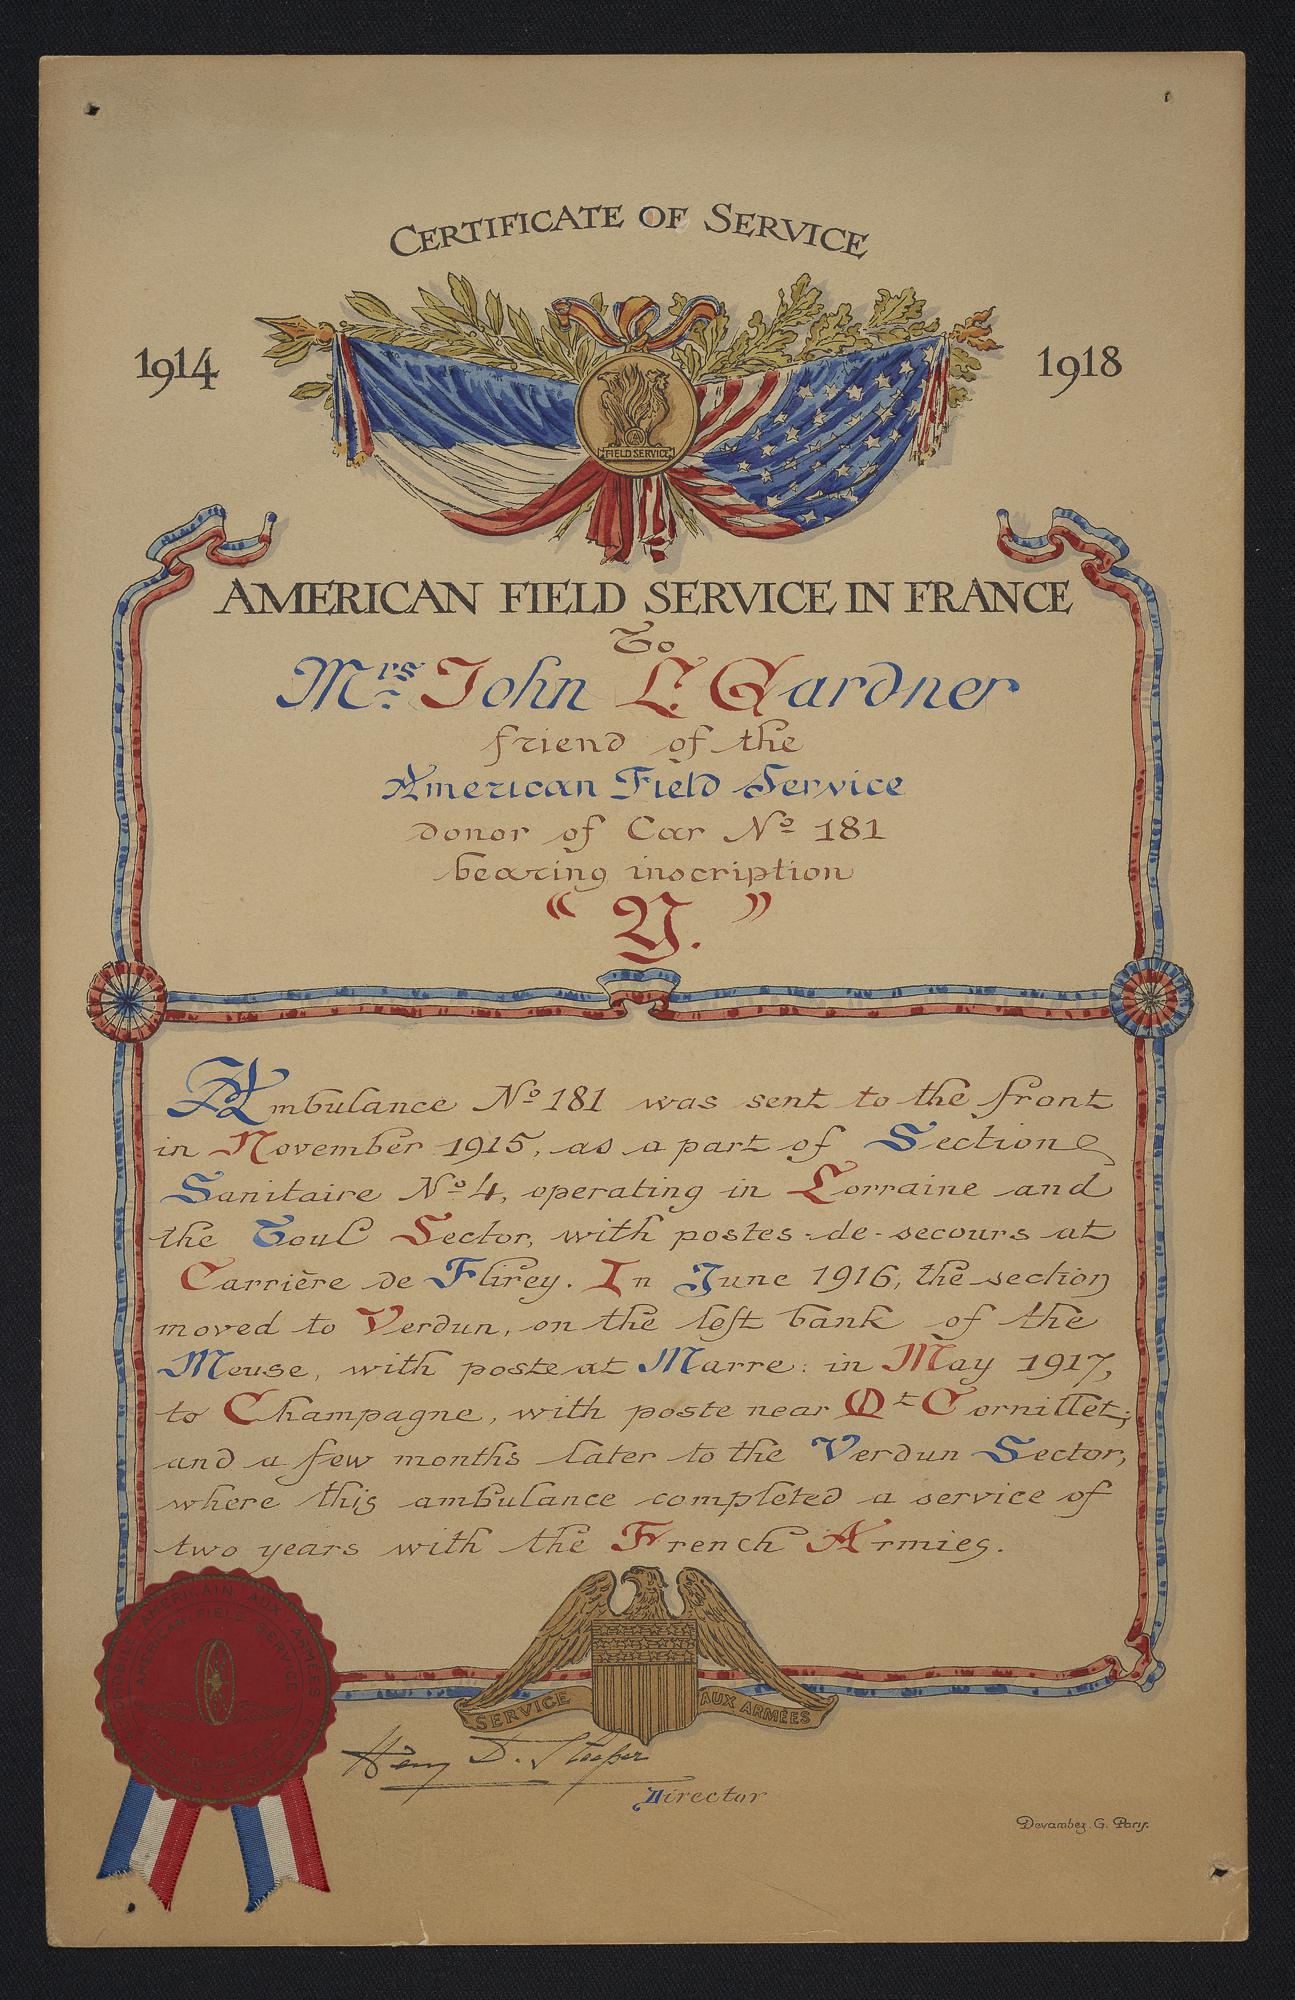 CERTIFICATE OF SERVICE
1914
1918
FIELD SERVICE
AMERICAN FIELD SERVICE IN FRANCE
To
Mrs. John L. Gardner
friend of the
American Field Service
donor of Car No 181
bearing inscription
“Y.”
Ambulance No 181 was sent to the front
in November 1915, as a part of Section
Sanitaire No 4, operating in Lorraine and
the Toul Sector, with postes-de-secours at
Carrière de Flirey. In June 1916, the section
moved to Verdun, on the left bank of the
Meuse, with poste at Marre: in May 1917,
to Champagne, with poste near Mt Cornillet;
and a few months later to the Verdun Sector,
where this ambulance completed a service of
two years with the French Armies.
AMERICAIN AUX ARMÉES
AMERICAN FIELD SERVICE
HEADQUARTERS
SERVICE AUX ARMÉES
Henry D. Sleeper
Director
Devambez. G. Paris.